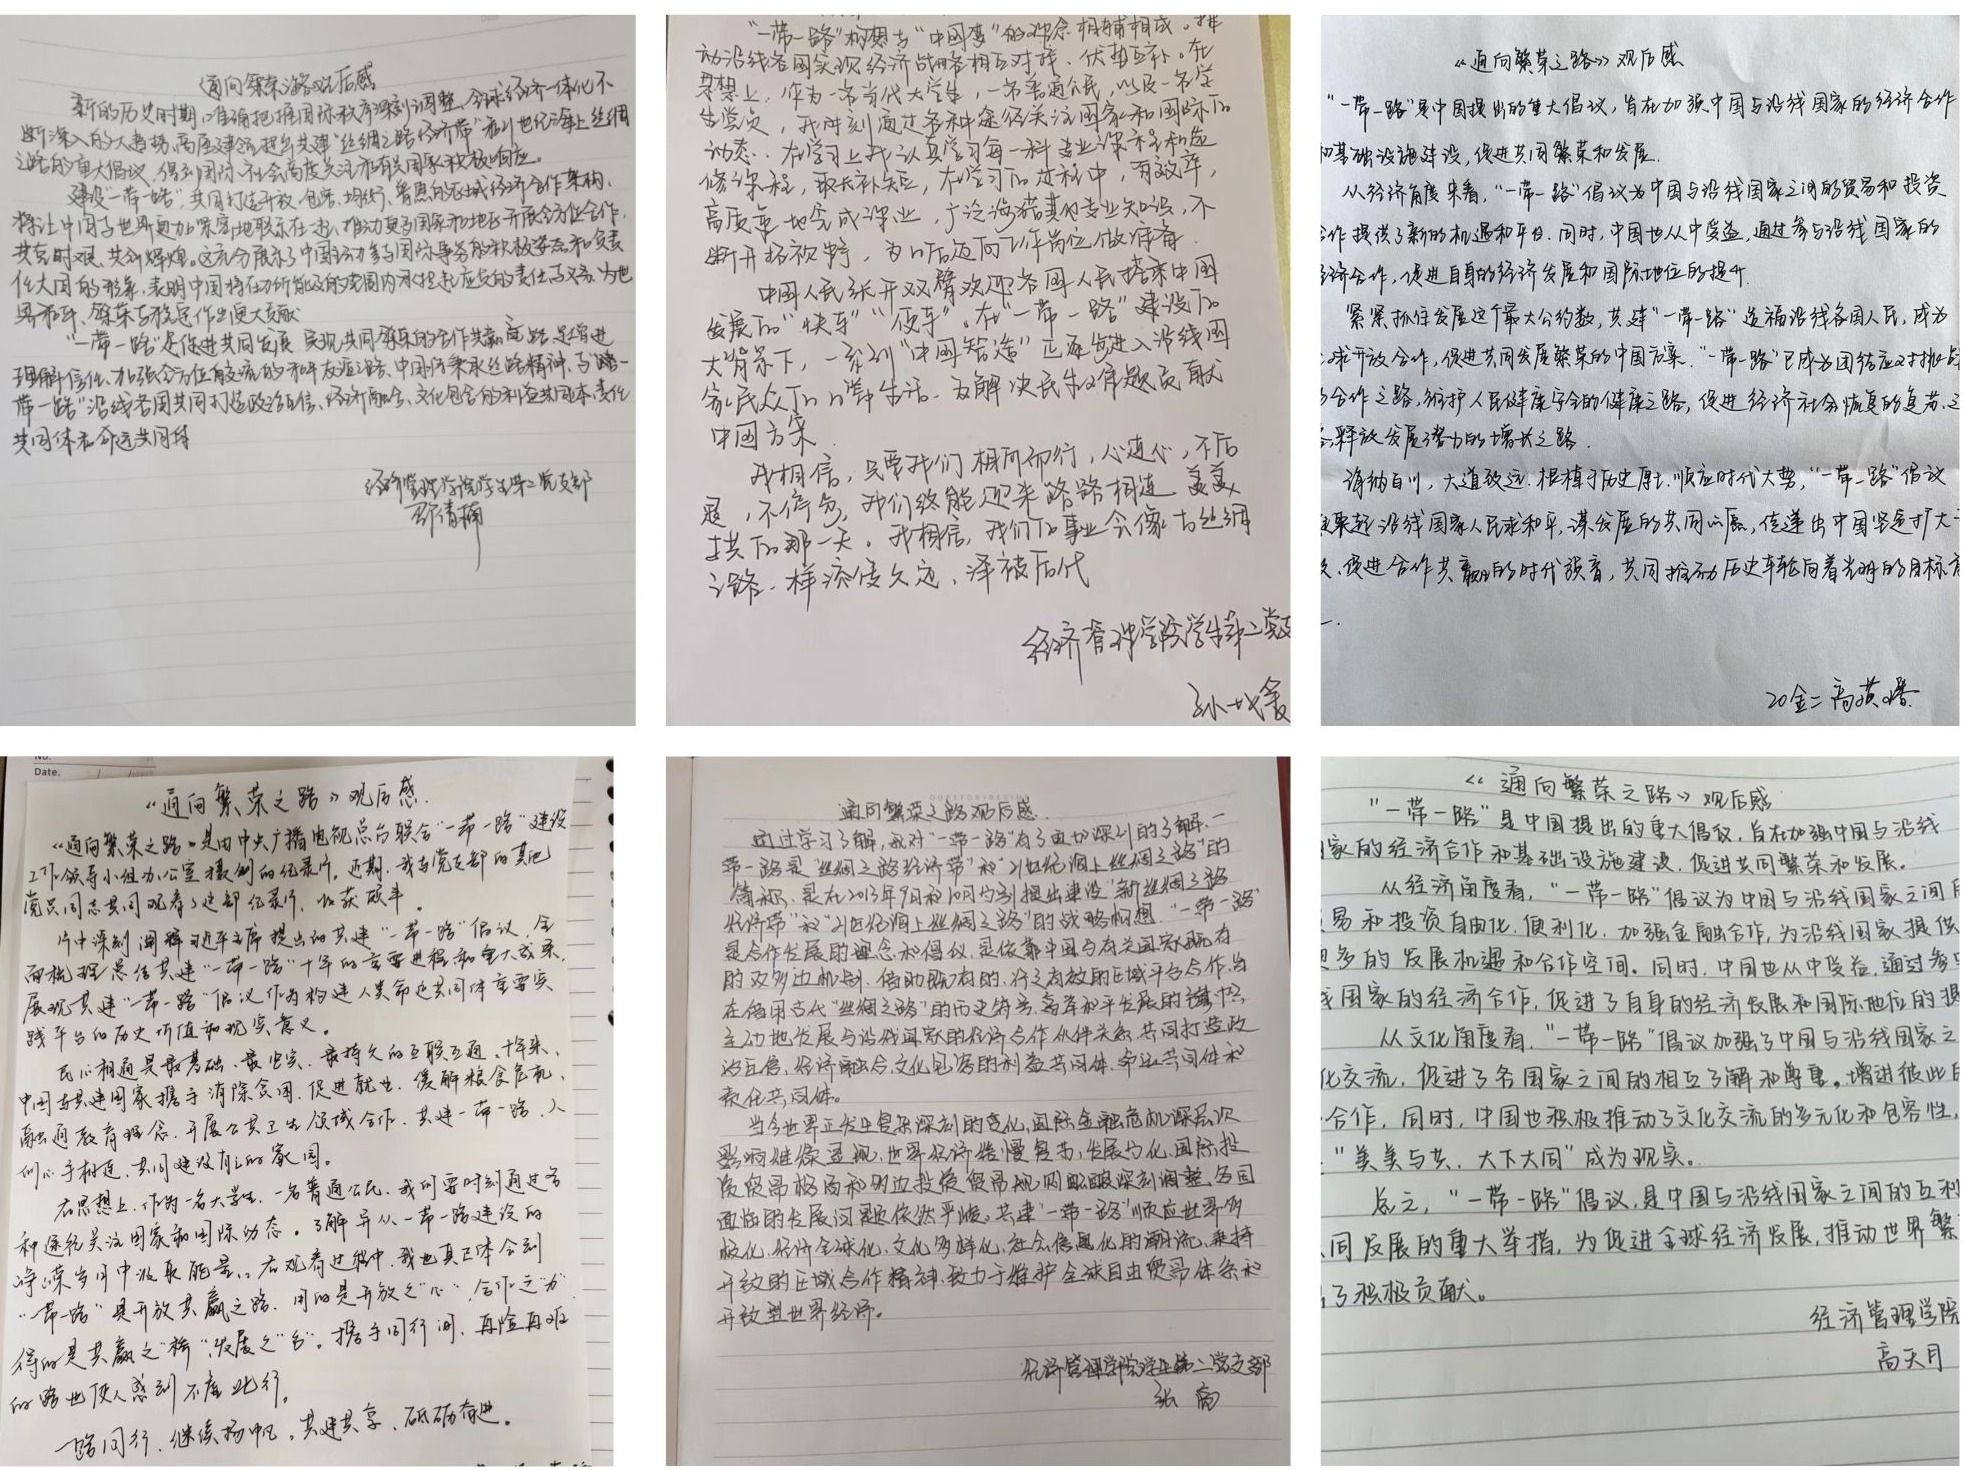 通向繁荣之路观后感
新的历史时期,准确把握国际秩序深刻调整,全球经济一体化不
断深入的大趋势,高屋建瓴提出共建“丝绸之路经济带”和21世纪海上丝绸
之路的重大倡议,得到国际社会高度关注和有关国家积极响应。
建设“一带一路”,共同打造开放、包容、均衡、普惠的区域经济合作架构、
将让中国与世界更加紧密地联系在一起,推动更多国家和地区开展全方位合作,
共克时艰、共创辉煌。这充分展示了中国主动参与国际事务的积极姿态和负责
任大国的形象,表明中国将在力所能及的范围内承担起应负的责任与义务,为世
界和平、繁荣与稳定作出更大贡献
“一带一路”是促进共同发展 实现共同繁荣的合作共赢之路,是增进
理解信任、加强全方位交流的和平友谊之路。中国将秉承丝路精神,与“
带一路”沿线各国共同打造政治互信、经济融合、文化包容的利益共同体、责任
共同体和命运共同体
经济管理学院学生第二党支部
清楠
“一带一路”构想与“中国梦”的理念相辅相成。推
动沿线各国实现经济战略相互对接、优势互补。在
思想上,作为一名当代大学生,一名普通公民,以及一名学
生党员,我时刻通过各种途径关注国家和国际的
动态。在学习上我认真学习每一科专业课程和选
修课程,取长补短,在学习的过程中,有效率,
高质量地完成课业,广泛涉猎其他专业知识,不
断开拓视野,为以后迈向工作岗位做准备.
中国人民张开双臂欢迎各国人民搭乘中国
发展的“快车”“便车”。在“一带一路”建设的
大背景下,一系列“中国智造”正逐步进入沿线国
家民众的日常生活、为解决民生问题贡献
中国方案.
我相信,只要我们相向而行,心连心,不后
退,不停步,我们终能迎来路路相连 美美
与共的那一天。我相信,我们的事业会像古丝绸
之路一样流传久远、泽被后代
经济管理学院学生第二党支
孙
《通向繁荣之路》观后感
“一带一路”是中国提出的重大倡议,旨在加强中国与沿线国家的经济合作
和基础设施建设,促进共同繁荣和发展.
从经济角度来看,“一带一路”倡议为中国与沿线国家之间的贸易和投资
合作提供了新的机遇和平台.同时,中国也从中受益,通过参与沿线国家的
经济合作,促进自身的经济发展和国际地位的提升.
紧紧抓住发展这个最大公约数,共建“一带一路”造福沿线各国人民,成为
求开放合作,促进共同发展繁荣的中国方案.“一带一路”已成为团结应对挑战
合作之路,维护人民健康安全的健康之路,促进经济社会恢复的复苏之
释放发展潜力的增长之路.
海纳百川,大道致远.根植于历史厚土,顺应时代大势,“一带一路”倡议
承载起沿线国家人民求和平,谋发展的共同心愿,传递出中国坚定扩大
促进合作共赢的时代强音,共同推动历史车轮向着光明的目标
20金二 高
Date.
《通向繁荣之路》观后感.
《通向繁荣之路》是由中央广播电视总台联合“一带一路”建设
工作领导小组办公室摄制的纪录片。近期,我与党支部的其他
党员同志共同观看了这部纪录片,收获颇丰。
片中深刻阐释习近平主席提出的共建“一带一路”倡议,全
面梳理总结共建“一带一路”十年的主要进程和重大成果,
展现共建“一带一路”倡议作为构建人类命运共同体重要实
践平台的历史价值和现实意义。
民心相通是最基础、最坚实、最持久的互联互通,十年来,
中国与共建国家携手消除贫困、促进就业、缓解粮食危机、
融通教育理念、开展公共卫生领域合作,共建一带一路,人
们心手相连,共同建设自己的家园。
在思想上,作为一名大学生,一名普通公民,我们要时刻通过各
种途径关注国家和国际动态。了解并从一带一路建设的
峥嵘岁月中汲取能量。在观看过程中,我也真正体会到
“一带一路”是开放共赢之路,用的是开放之“心”,合作之“力”
得的是共赢之“ ”发展之“ ”。携手同行间,再险再难
的路也使人感到不虚此行。
一路同行,继续扬帆。共建共享、砥砺奋进。
通向繁荣之路观后感.
通过学习了解,我对“一带一路”有了更加深刻的了解,一
带一路是“丝绸之路经济带”和“21世纪海上丝绸之路”的
简称,是在2013年9月和10月分别提出建设“新丝绸之路
经济带”和“21世纪海上丝绸之路”的战略构想.“一带一路”
是合作发展的理念和倡议,是依靠中国与有关国家既有
的双多边机制,借助既有的、行之有效的区域平台合作,旨
在借用古代“丝绸之路”的历史符号,高举和平发展的旗帜,
主动地发展与沿线国家的经济合作伙伴关系,共同打造政
治互信、经济融合、文化包容的利益共同体、命运共同体和
责任共同体。
当今世界正发生复杂深刻的变化,国际金融危机深层次
影响继续显现,世界经济缓慢复苏、发展分化,国际投
资贸易格局和多边投资贸易规则酝酿深刻调整,各国
面临的发展问题依然严峻。共建“一带一路”顺应世界多
极化、经济全球化、文化多样化、社会信息化的潮流,秉持
开放的区域合作精神,致力于维护全球自由贸易体系和
开放型世界经济。
经济管理学院学生第二党支部
张
《通向繁荣之路》观后感
“一带一路”是中国提出的重大倡议,旨在加强中国与沿线
国家的经济合作和基础设施建设,促进共同繁荣和发展。
从经济角度看,“一带一路”倡议为中国与沿线国家之间
易和投资自由化、便利化,加强金融合作,为沿线国家提供
更多的发展机遇和合作空间。同时,中国也从中受益,通过参与
线国家的经济合作,促进了自身的经济发展和国际地位的提
从文化角度看,“一带一路”倡议加强了中国与沿线国家之
化交流,促进了各国家之间的相互了解和尊重。增进彼此
合作,同时,中国也积极推动了文化交流的多元化和包容性,
“美美与共,天下大同”成为现实。
总之,“一带一路”倡议,是中国与沿线国家之间的互利
同发展的重大举措,为促进全球经济发展,推动世界繁
了积极贡献。
经济管理学院
高天月